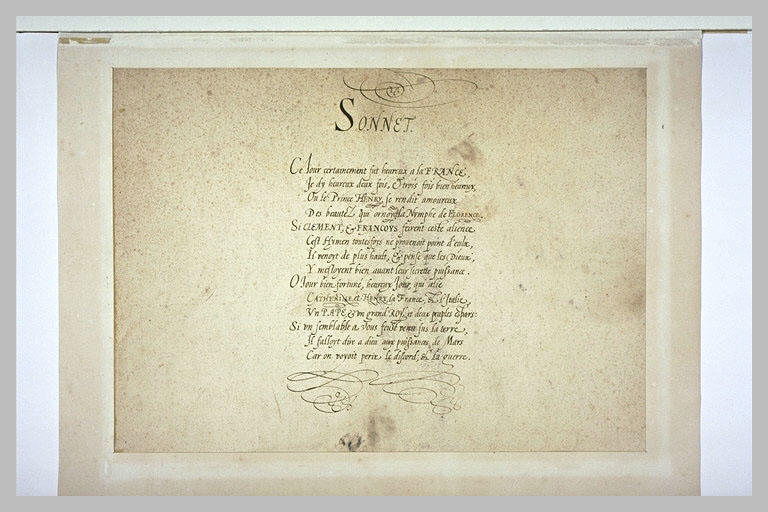 SONNET.
Ce Iour certainement fut heureux a la FRANCE,
Ie dy heureux deux fois, & trois fois bien heureux,
Ou le Prince HENRY, se rendit amoureux
Des beautez qui ornoyent la Nymphe de FLORENCE.
Si CLEMENT, & FRANCOYS feirent ceste alience
Cest Hymen toutesfoys ne provenoit point d'eulx,
Il venoyt de plus hault, & pense que les Dieux,
Y mesloyent bien auant leur secrette puissance.
O Iour bien fortuné, heureux Iour, qui alie
CATHERINE et HENRY, la France, & l'Italie,
Vn PAPE & vn grand ROY, et deux peuples espars:
Si vn semblable a vous feust venu sus la terre,
Il falloyt dire a dieu aux puissances de Mars
Car on voyoit perir le discord, & la guerre.